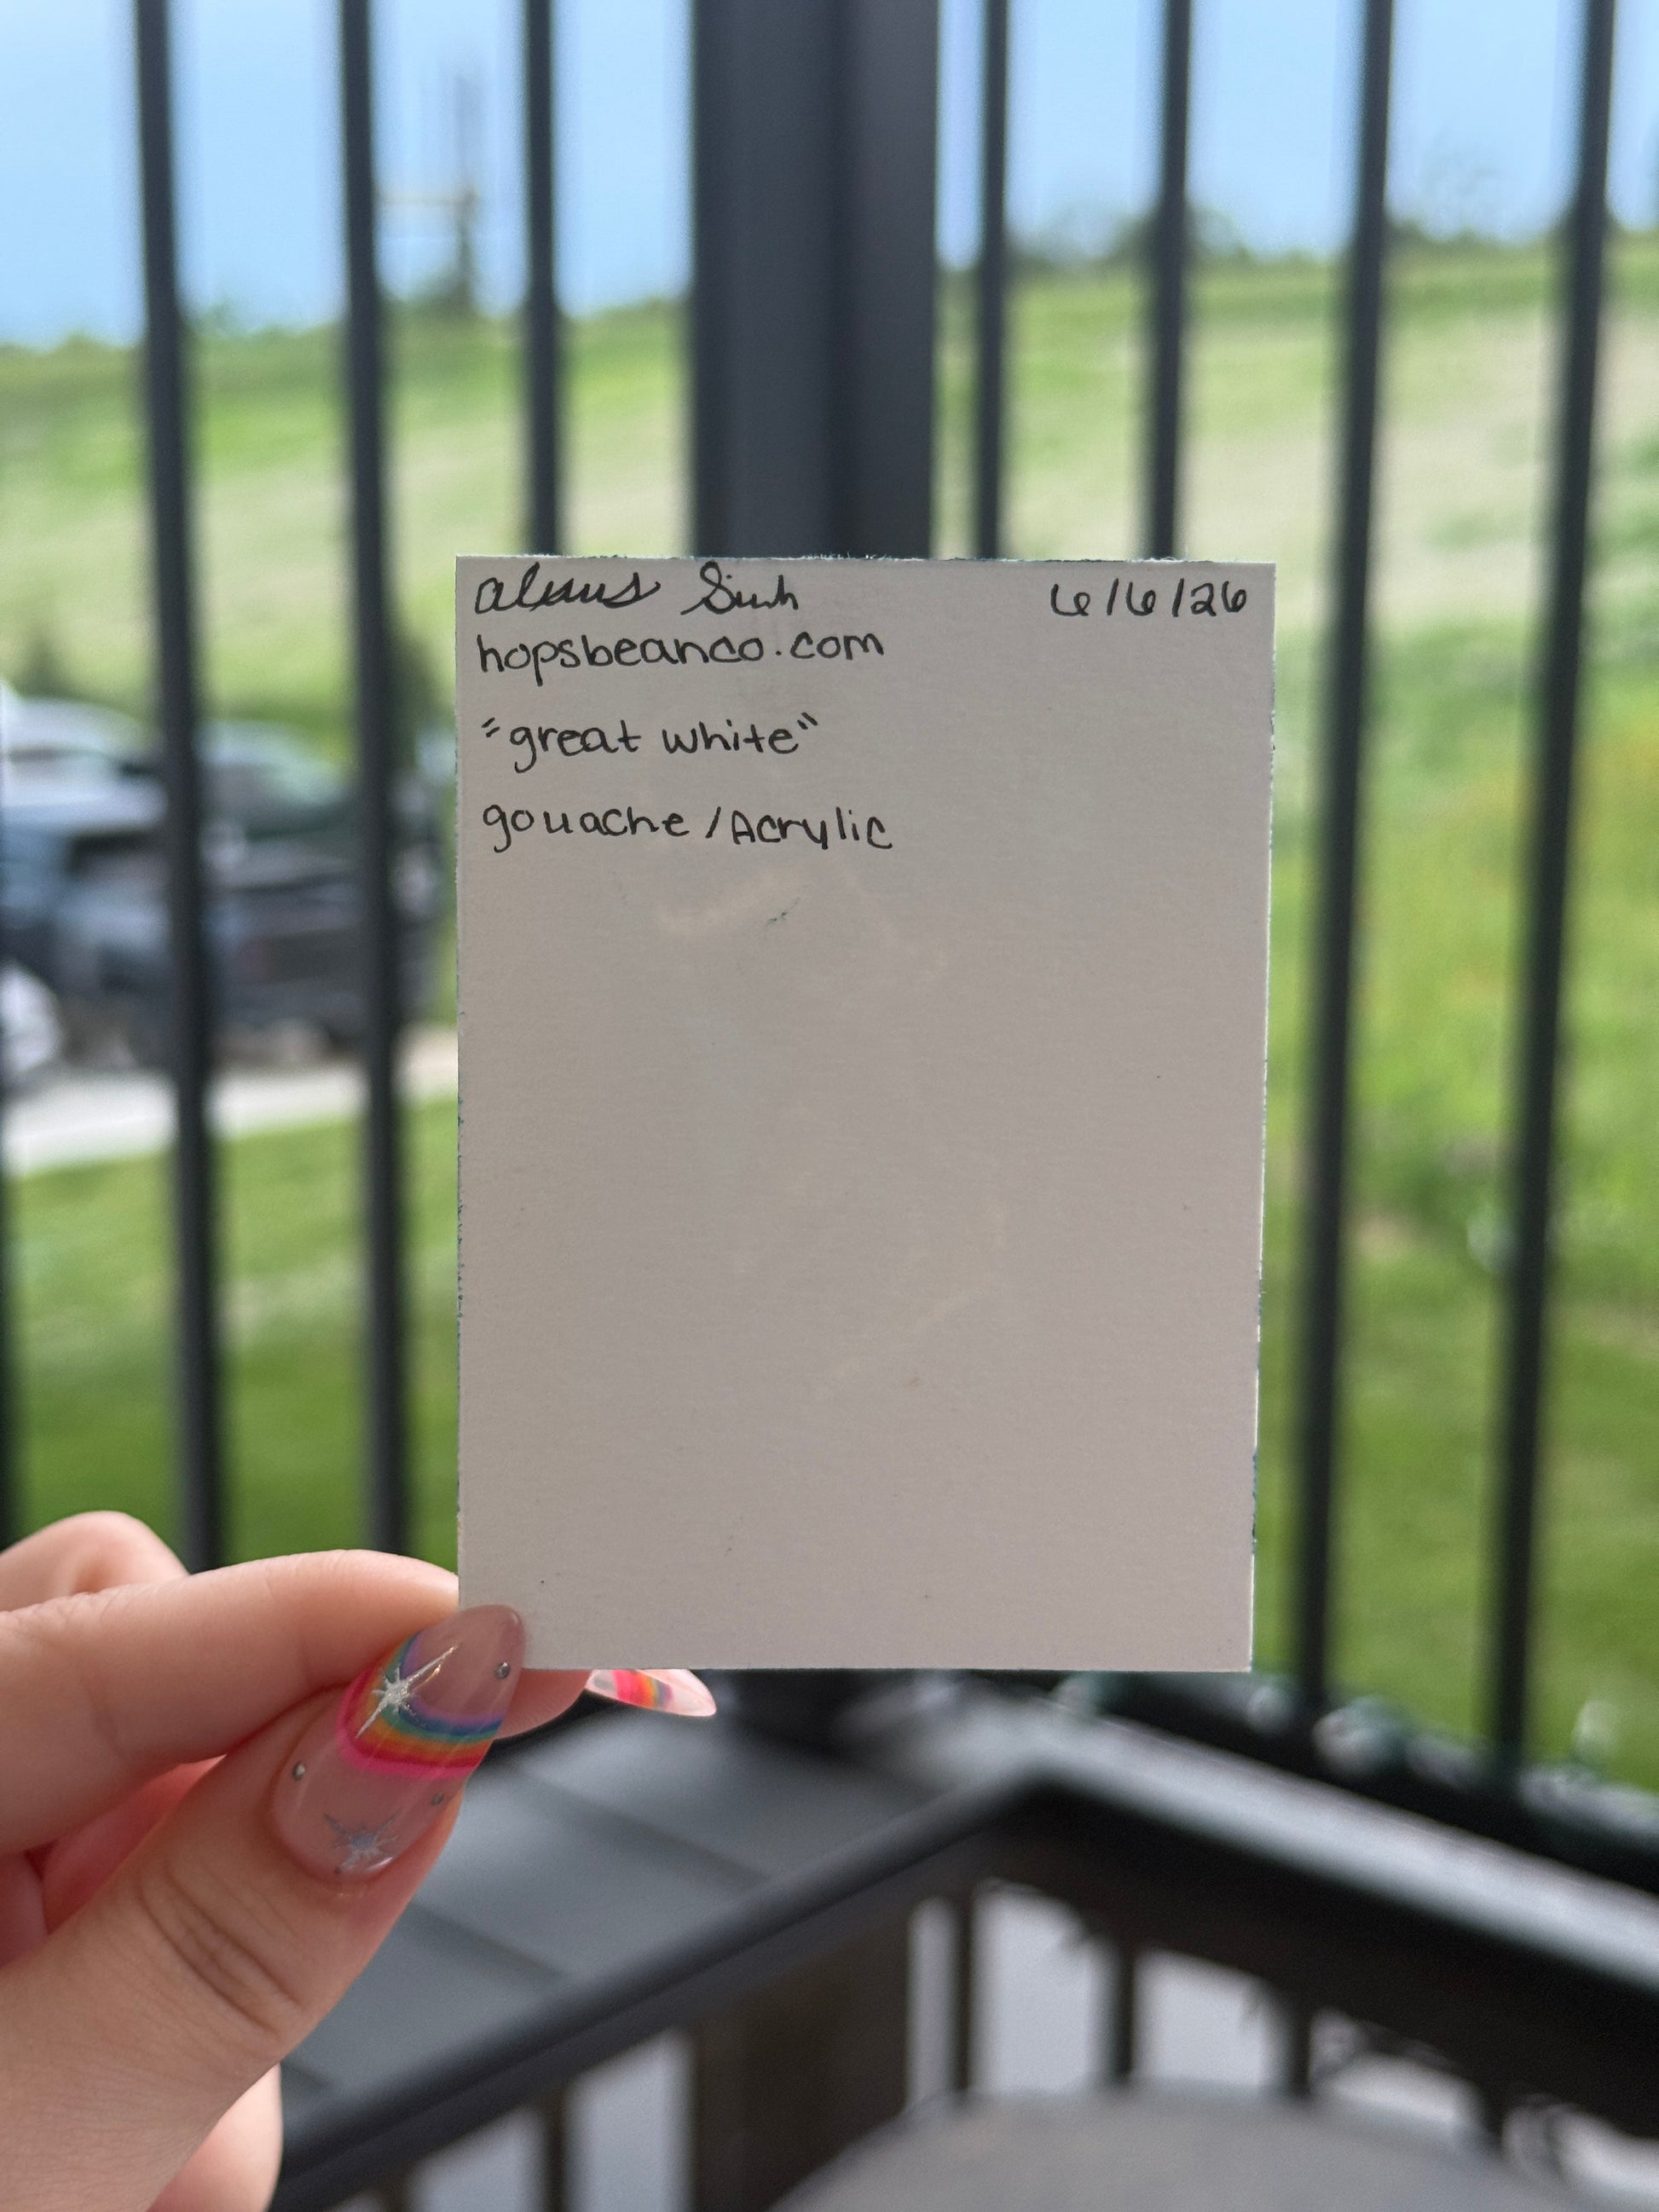 6/6/26
hopsbeanco.com
"great white"
gouache/Acrylic